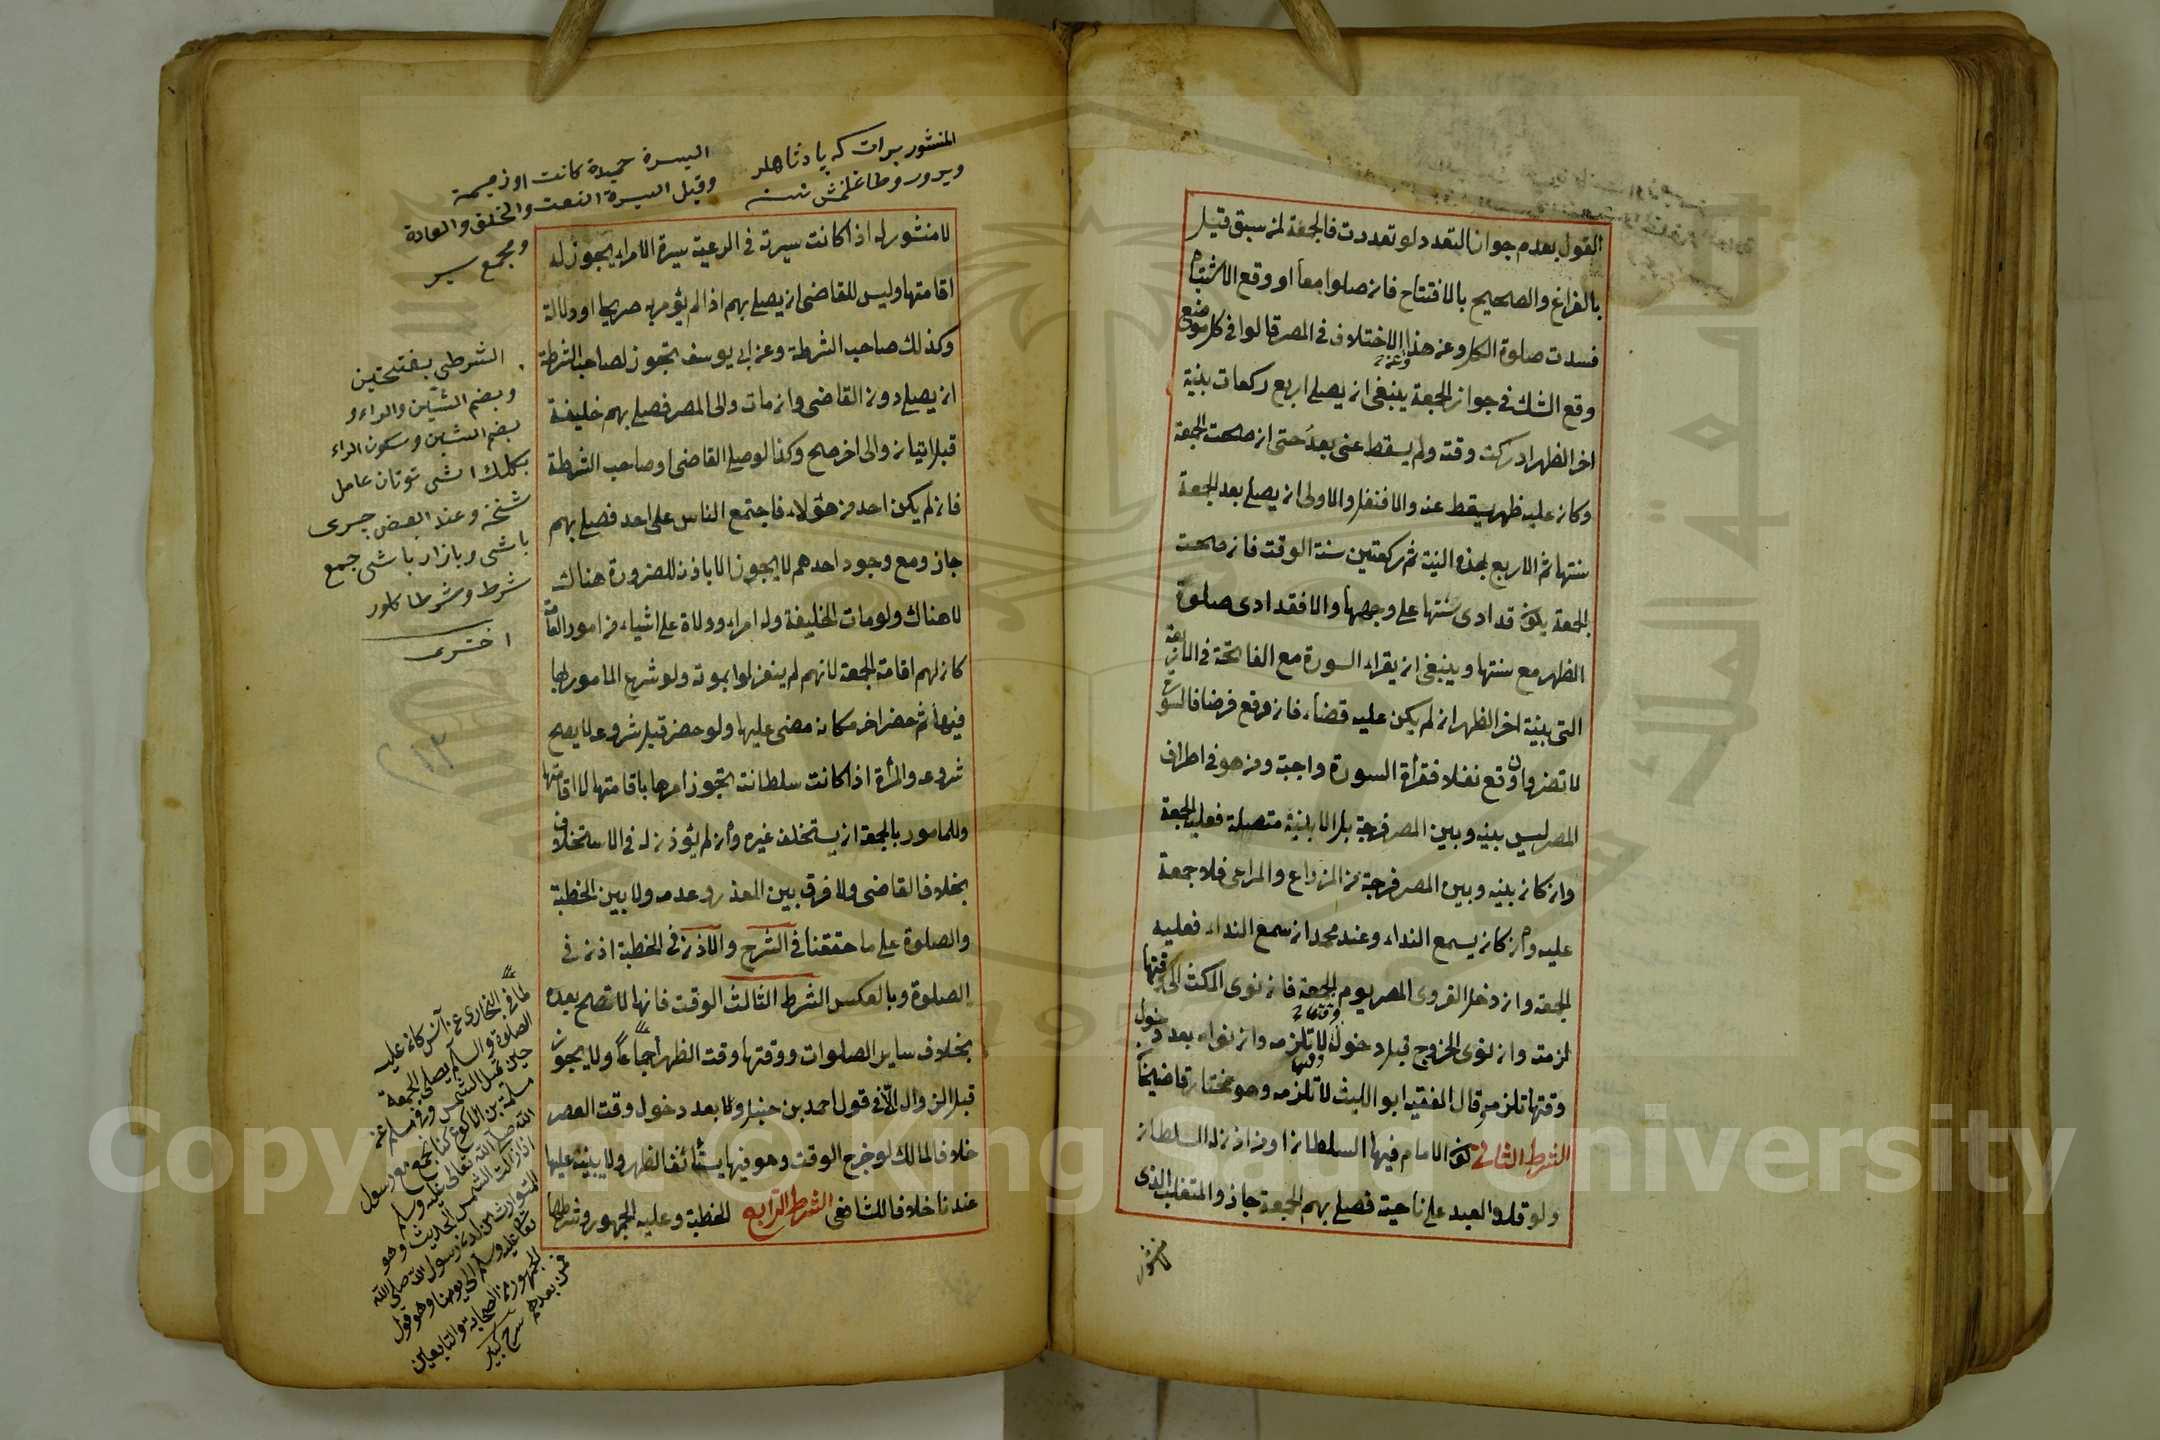 القول بعدم جواز التعدد لو تعددت فالجمعة لمن سبق قيل
بالفراغ والصحيح بالافتتاح فان صلوا معا او وقع الاشتباه
فسدت صلوة الكل وعن هذا الاختلاف في المصر قالوا في كل موضع
وقع الشك في جواز الجمعة ينبغي ان يصلي اربع ركعات بنية
اخر الظهر ادركت وقته ولم يسقط عني بعد حتى ان صحت الجمعة
وكان عليه ظهر يسقط عنه والا فنفل والاولى ان يصلي بعد الجمعة
سنتها ثم الاربع بهذه النية ثم ركعتين سنة الوقت فان صحت
الجمعة يكون قد ادى سنتها على وجهها والا فقد ادى صلوة
الظهر مع سنتها وينبغي ان يقراء السورة مع الفاتحة في الاربعة
التي بنية اخر الظهر ان لم يكن عليه قضاء فان وقع فرضا فالسورة
لا تضر وان وقع نفلا فقرأة السورة واجبة ومن هو في اطراف
المصر ليس بينه وبين المصر فرجة بل الابنية متصلة فعليه الجمعة
وان كان بينه وبين المصر فرجة من المزارع والمراعي فلا جمعة
عليه وان كان يسمع النداء وعند محمد ان سمع النداء فعليه
الجمعة وان دخل القروى المصر يوم الجمعة فان نوى المكث الى وقتها
لزمته وان نوى الخروج قبل دخول وقتها لا تلزمه وان نواه بعد دخول
وقتها تلزمه قال الفقيه ابو الليث لا تلزمه وهو مختار قاضيخان
الشرط الثاني كون الامام فيها السلطان او من اذن له السلطان
ولو قلد العبد على ناحية فصلى بهم الجمعة جاز والمتغلب الذى
لا منشور
المنشور برات كه پادشاهلر
ويرور وطاغلمش نسنه
السيرة حميدة كانت او ذميمة
وقيل السيرة النعت والخلق والعادة
ومجمع سير
لا منشور له اذا كانت سيرته في الرعية سيرة الامراء يجوز له
اقامتها وليس للقاضي ان يصلي بهم اذا لم يؤمر به صريحا او دلالة
وكذلك صاحب الشرطة وعن ابي يوسف تجوز لصاحب الشرطة
ان يصلي دون القاضي وان مات والى المصر فصلى بهم خليفة
قبل اتيان والى اخر صح وكذا لو صلى القاضي او صاحب الشرطة
فان لم يكن احد من هؤلاء فاجتمع الناس على احد فصلى بهم
جاز ومع وجود احدهم لا يجوز الا باذن للضرورة هناك
لا هناك ولو مات الخليفة وله امراء وولاة على اشياء من امور العامة
كان لهم اقامة الجمعة لانهم لم ينعزلوا بموته ولو شرع المامور بها
فيها ثم حضر اخر مكانه مضى عليها ولو حضر قبل شروعه لا يصح
شروعه والمرأة اذا كانت سلطانة تجوز امرها باقامتها لا اقامتها
وللمامور بالجمعة ان يستخلف غيره وان لم يؤذن له في الاستخلاف
بخلاف القاضي ولا فرق بين العذر وعدمه ولا بين الخطبة
والصلوة على ما حققنا في الشرح والاذن في الخطبة اذن في
الصلوة وبالعكس الشرط الثالث الوقت فانها لا تصح بعده
بخلاف ساير الصلوات ووقتها وقت الظهر اجماعا ولا يجوز
قبل الزوال الا في قول احمد بن حنبل ولا بعد دخول وقت العصر
خلافا لمالك لو خرج الوقت وهو فيها يستأنف الظهر ولا يبنيه عليها
عندنا خلافا للشافعي الشرط الرابع الخطبة وعليه الجمهور وشرطها
الشرطي بفتحتين
وبضم الشين والراء و
بضم الشين وسكون الراء
بكلك
شحنه وعند البعض چرى
باشى وبازار باشى جمع
شرط وشرطا كلور
اخترى
١١٣
لما في البخاري عن انس كان عليه
الصلوة والسلم يصلي الجمعة
حين تميل الشمس وفي مسلم عن
سلمة بن الاكوع كنا نجمع مع رسول
الله صلى الله تعالى عليه وسلم
اذا زالت الشمس الحديث وهو
المتوارث من لدن رسول الله صلى الله
تعالى عليه وسلم الى يومنا وهو قول
الجمهور من الصحابة والتابعين
فمن بعدهم شرح كبير
Copyright © King Saud University